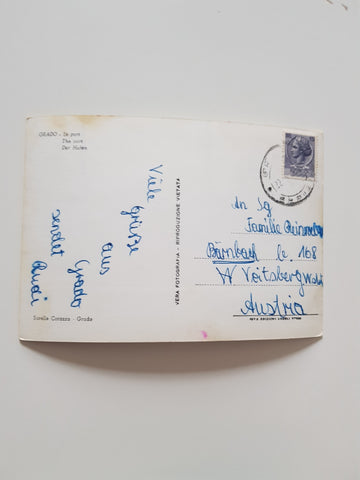 GRADO - Il porto
The port
Der Hafen
Viele
Grüsse
aus
Grado
sendet
Rudi
Sorelle Corazza - Grado
VERA FOTOGRAFIA - RIPRODUZIONE VIETATA
An Sg
Familie
Bärnbach 168
Voitsberg
Austria